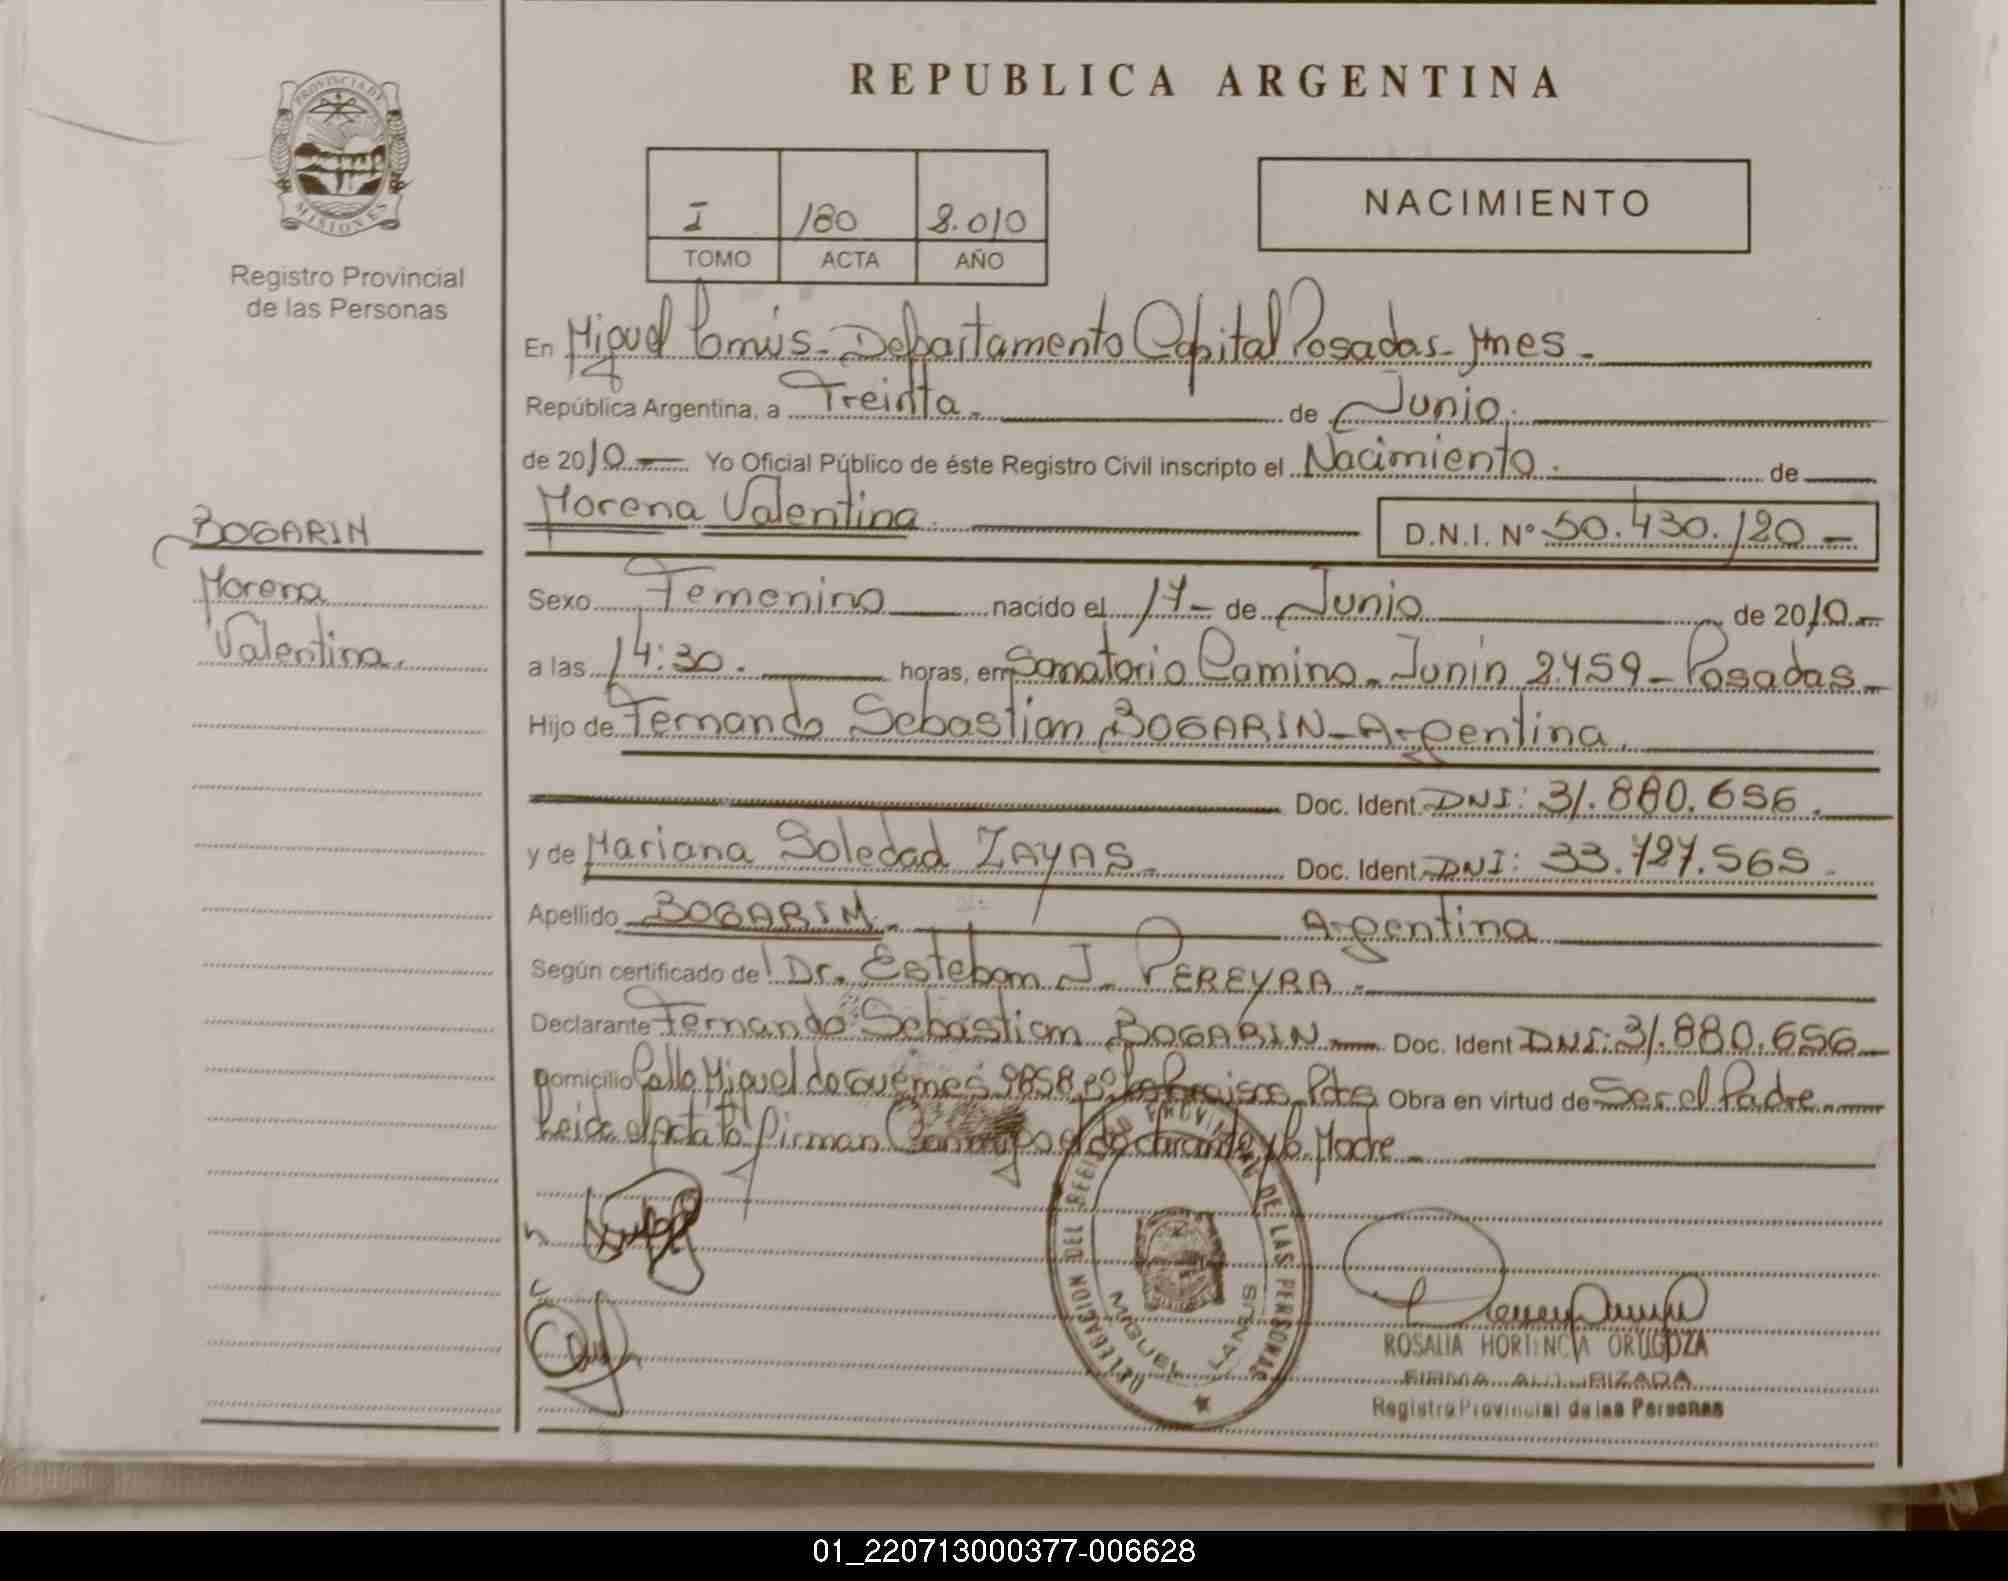 PROVINCIA DE
MISIONES
Registro Provincial
de las Personas
BOGARIN
Morena
Valentina.
REPUBLICA ARGENTINA
I 180 2.010
TOMO ACTA AÑO
NACIMIENTO
En Miguel Lanús - Departamento Capital Posadas - Mnes -
República Argentina, a Treinta - de Junio.
de 2010 - Yo Oficial Público de éste Registro Civil inscripto el Nacimiento. de
Morena Valentina. D.N.I. Nº 50.430.120 -
Sexo Femenino nacido el 17 - de Junio de 2010 -
a las 14:30. horas, en Sanatorio Camino - Junín 2459 - Posadas -
Hijo de Fernando Sebastian BOGARIN - Argentina.
Doc. Ident. DNI: 31.880.656.
y de Mariana Soledad ZAYAS - Doc. Ident. DNI: 33.727.565.
Apellido BOGARIN. - Argentina
Según certificado de Dr. Esteban J. PEREYRA -
Declarante Fernando Sebastian BOGARIN - Doc. Ident DNI: 31.880.656
domicilio Calle Miguel de Güemes 9858 Pdas Obra en virtud de Ser el Padre
Leida el Acta la firman Conmigo el declarante y la Madre -
DELEGACION DEL REGISTRO PROVINCIAL DE LAS PERSONAS
MIGUEL LANUS
ROSALIA HORTENCIA ORUGOZA
FIRMA AUTORIZADA
Registro Provincial de las Personas
01_220713000377-006628